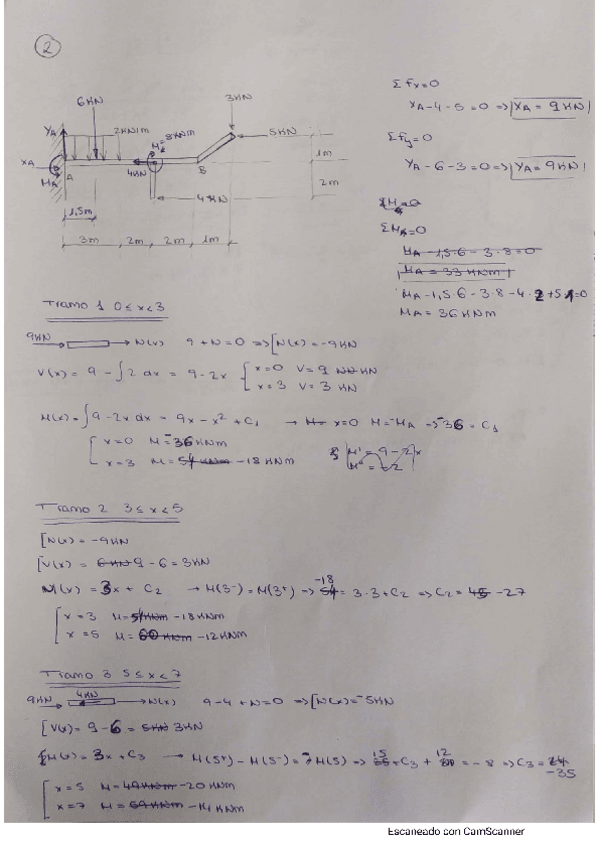 2
6KN
3KN
YA
2KN/m
M=8KNm
5KN
XA
MA
A
4KN
B
1m
4KN
2m
1,5m
3m
2m
2m
1m
Σ Fx=0
XA-4-5=0 => XA = 9 KN
Σ Fy=0
YA-6-3=0 => YA = 9KN
ΣM=0
ΣMA=0
MA-1,5·6-3·8=0
MA = 33 KNm
MA-1,5·6-3·8-4·2+5·1=0
MA = 36 KNm
Tramo 1 0≤x<3
9KN N(x) 9+N=0 => [N(x)=-9KN
V(x) = 9 - ∫2 dx = 9-2x { x=0 V=9 KN
x=3 V=3 KN
M(x)=∫9-2x dx = 9x-x²+C1 → x=0 M=-MA => -36=C1
x=0 M=-36KNm
x=3 M=54KNm -18KNm
M'=9-2x
M''=-2
Tramo 2 3≤x<5
[N(x)=-9KN
[V(x)= 6KN 9-6=3KN
M(x)=3x+C2 → M(3⁻)=M(3⁺) => 54 -18 = 3·3+C2 => C2= 45 -27
x=3 M=54KNm -18KNm
x=5 M=60KNm -12KNm
Tramo 3 5≤x<7
9KN 4KN N(x) 9-4+N=0 => [N(x)=-5KN
[V(x)=9-6= 5KN 3KN
[M(x)=3x+C3 → M(5⁺)-M(5⁻)=-M(5) => 15+C3+12=-8 => C3= -35
x=5 M=49KNm -20KNm
x=7 M=69KNm -14KNm
Escaneado con CamScanner